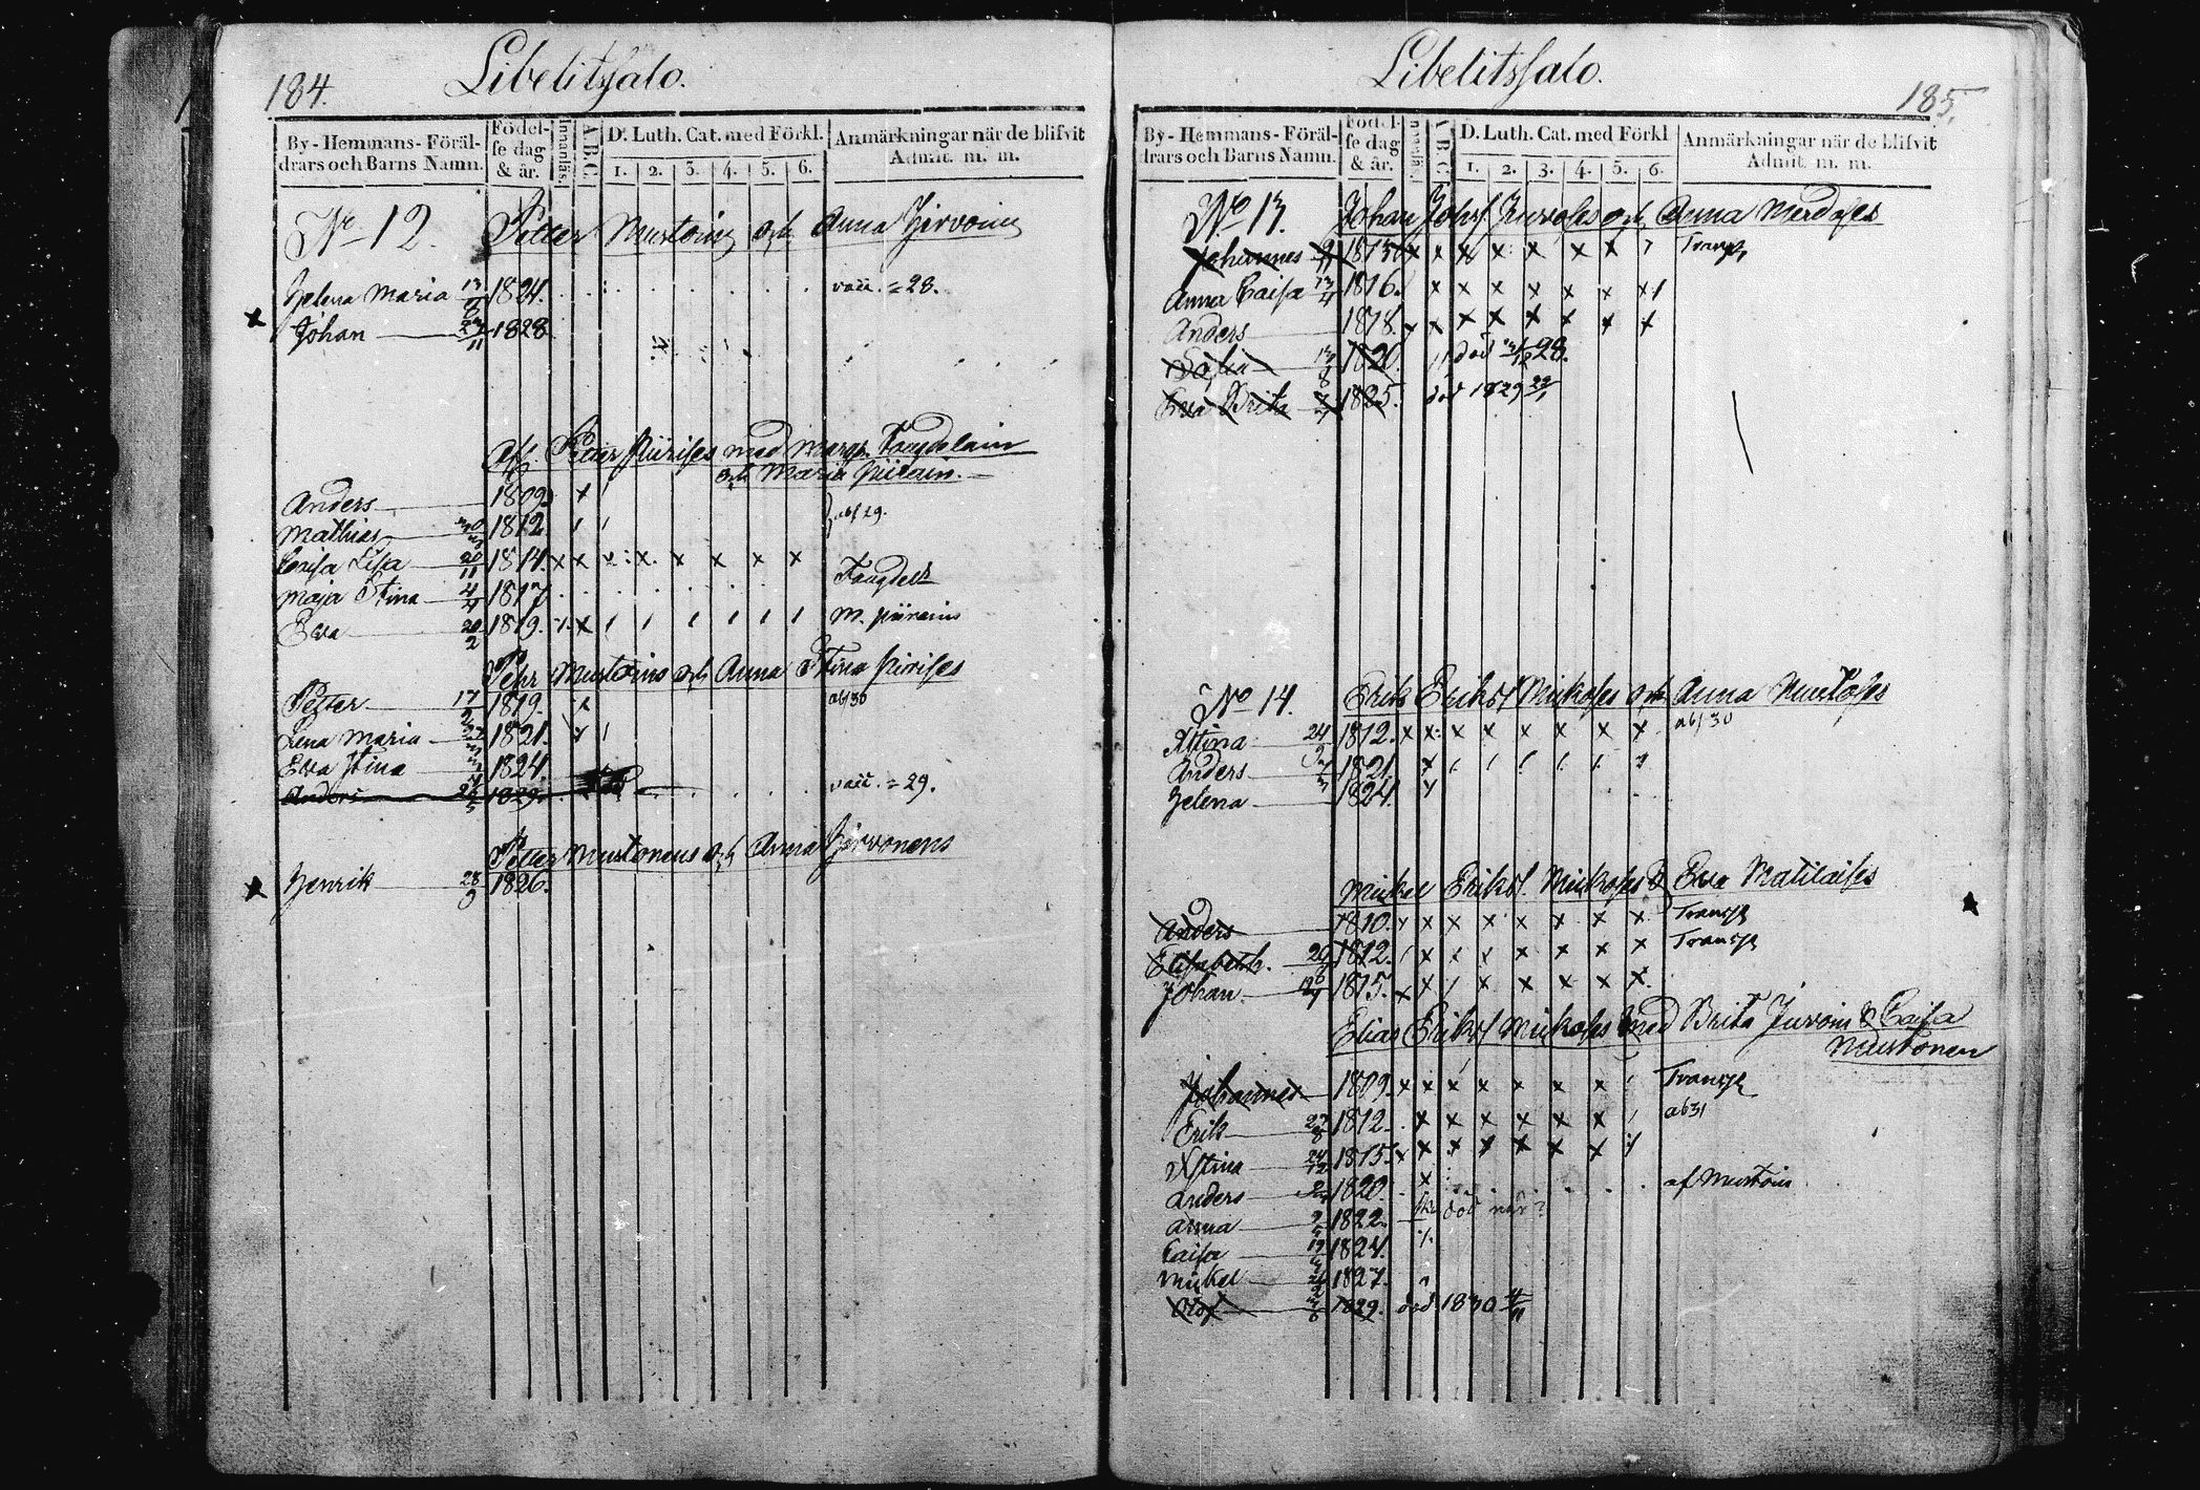 184. Libelitssalo.
By-Hemmans-Föräl-
drars och Barns Namn.
Födel-
se dag
& år.
Innanläs.
A.B.C.
D. Luth. Cat. med Förkl.
1. 2. 3. 4. 5. 6.
Anmärkningar när de blifvit
Admit. m. m.
No 12. Petter Mustoin och Anna Hirvoin
Helena Maria 1824. vacc. = 28.
x Johan 27/11 1828
af Petter Piirises med Marg. Taugdelain
och Maria Piirain.
Anders 1809 x /
Mathias 1812 / / abs 29.
Caisa Lisa 20/11 1814 x x x x. x x x x
Maja Stina 4/4 1817 Taugdels
Ewa 20/2 1819. x / / / / / / M. Piirains
Pehr Mustoins och Anna Stina Piirises
Petter 17/2 1819. x abs 30
Lena Maria 1821. x /
Ewa Stina 1824.
Anders 1829. vacc. = 29.
Petter Mustonens och Anna Hirvonens
x Henrik 28/9 1826.
Libelitssalo. 185.
By-Hemmans-Föräl-
drars och Barns Namn.
Födel-
se dag
& år.
D. Luth. Cat. med Förkl
1. 2. 3. 4. 5. 6.
Anmärkningar när de blifvit
Admit. m. m.
No 13. Johan Johss. Jurvoses och Anna
Johannes 1815 x x x x x x x Transp.
Anna Caisa 1816. x x x x x x x /
Anders 1818. x x x x x x x x
Sofia 1820. död 28.
Ewa Brita 1825. död 1829
No 14. Erik Erikss Mickoses och Anna Mustoses
Xstina 24 1812. x x x x x x x x abs 30
Anders 1821. x / / / / /
Helena 1824.
Mickel Erikss. Mickoses & Ewa Matilaises
Anders 1810. x x x x x x x Transp.
Elisabeth. 1812. / x x x x x x Transp.
Johan 1815. x x / x x x x x
Elias Erikss Mickoses med Brita Jurvoin & Caisa
Mustonen
Johannes 1809. x x x x x x x / Transp.
Erik 27/8 1812. x x x x x x / ab 31
Xstina 24/12 1815. x x x x x x x
Anders 1820. x af Mustoin
Anna 1822. död när?
Caisa 1824.
Mickel 1827.
Olof 1829. död 1830 4/11